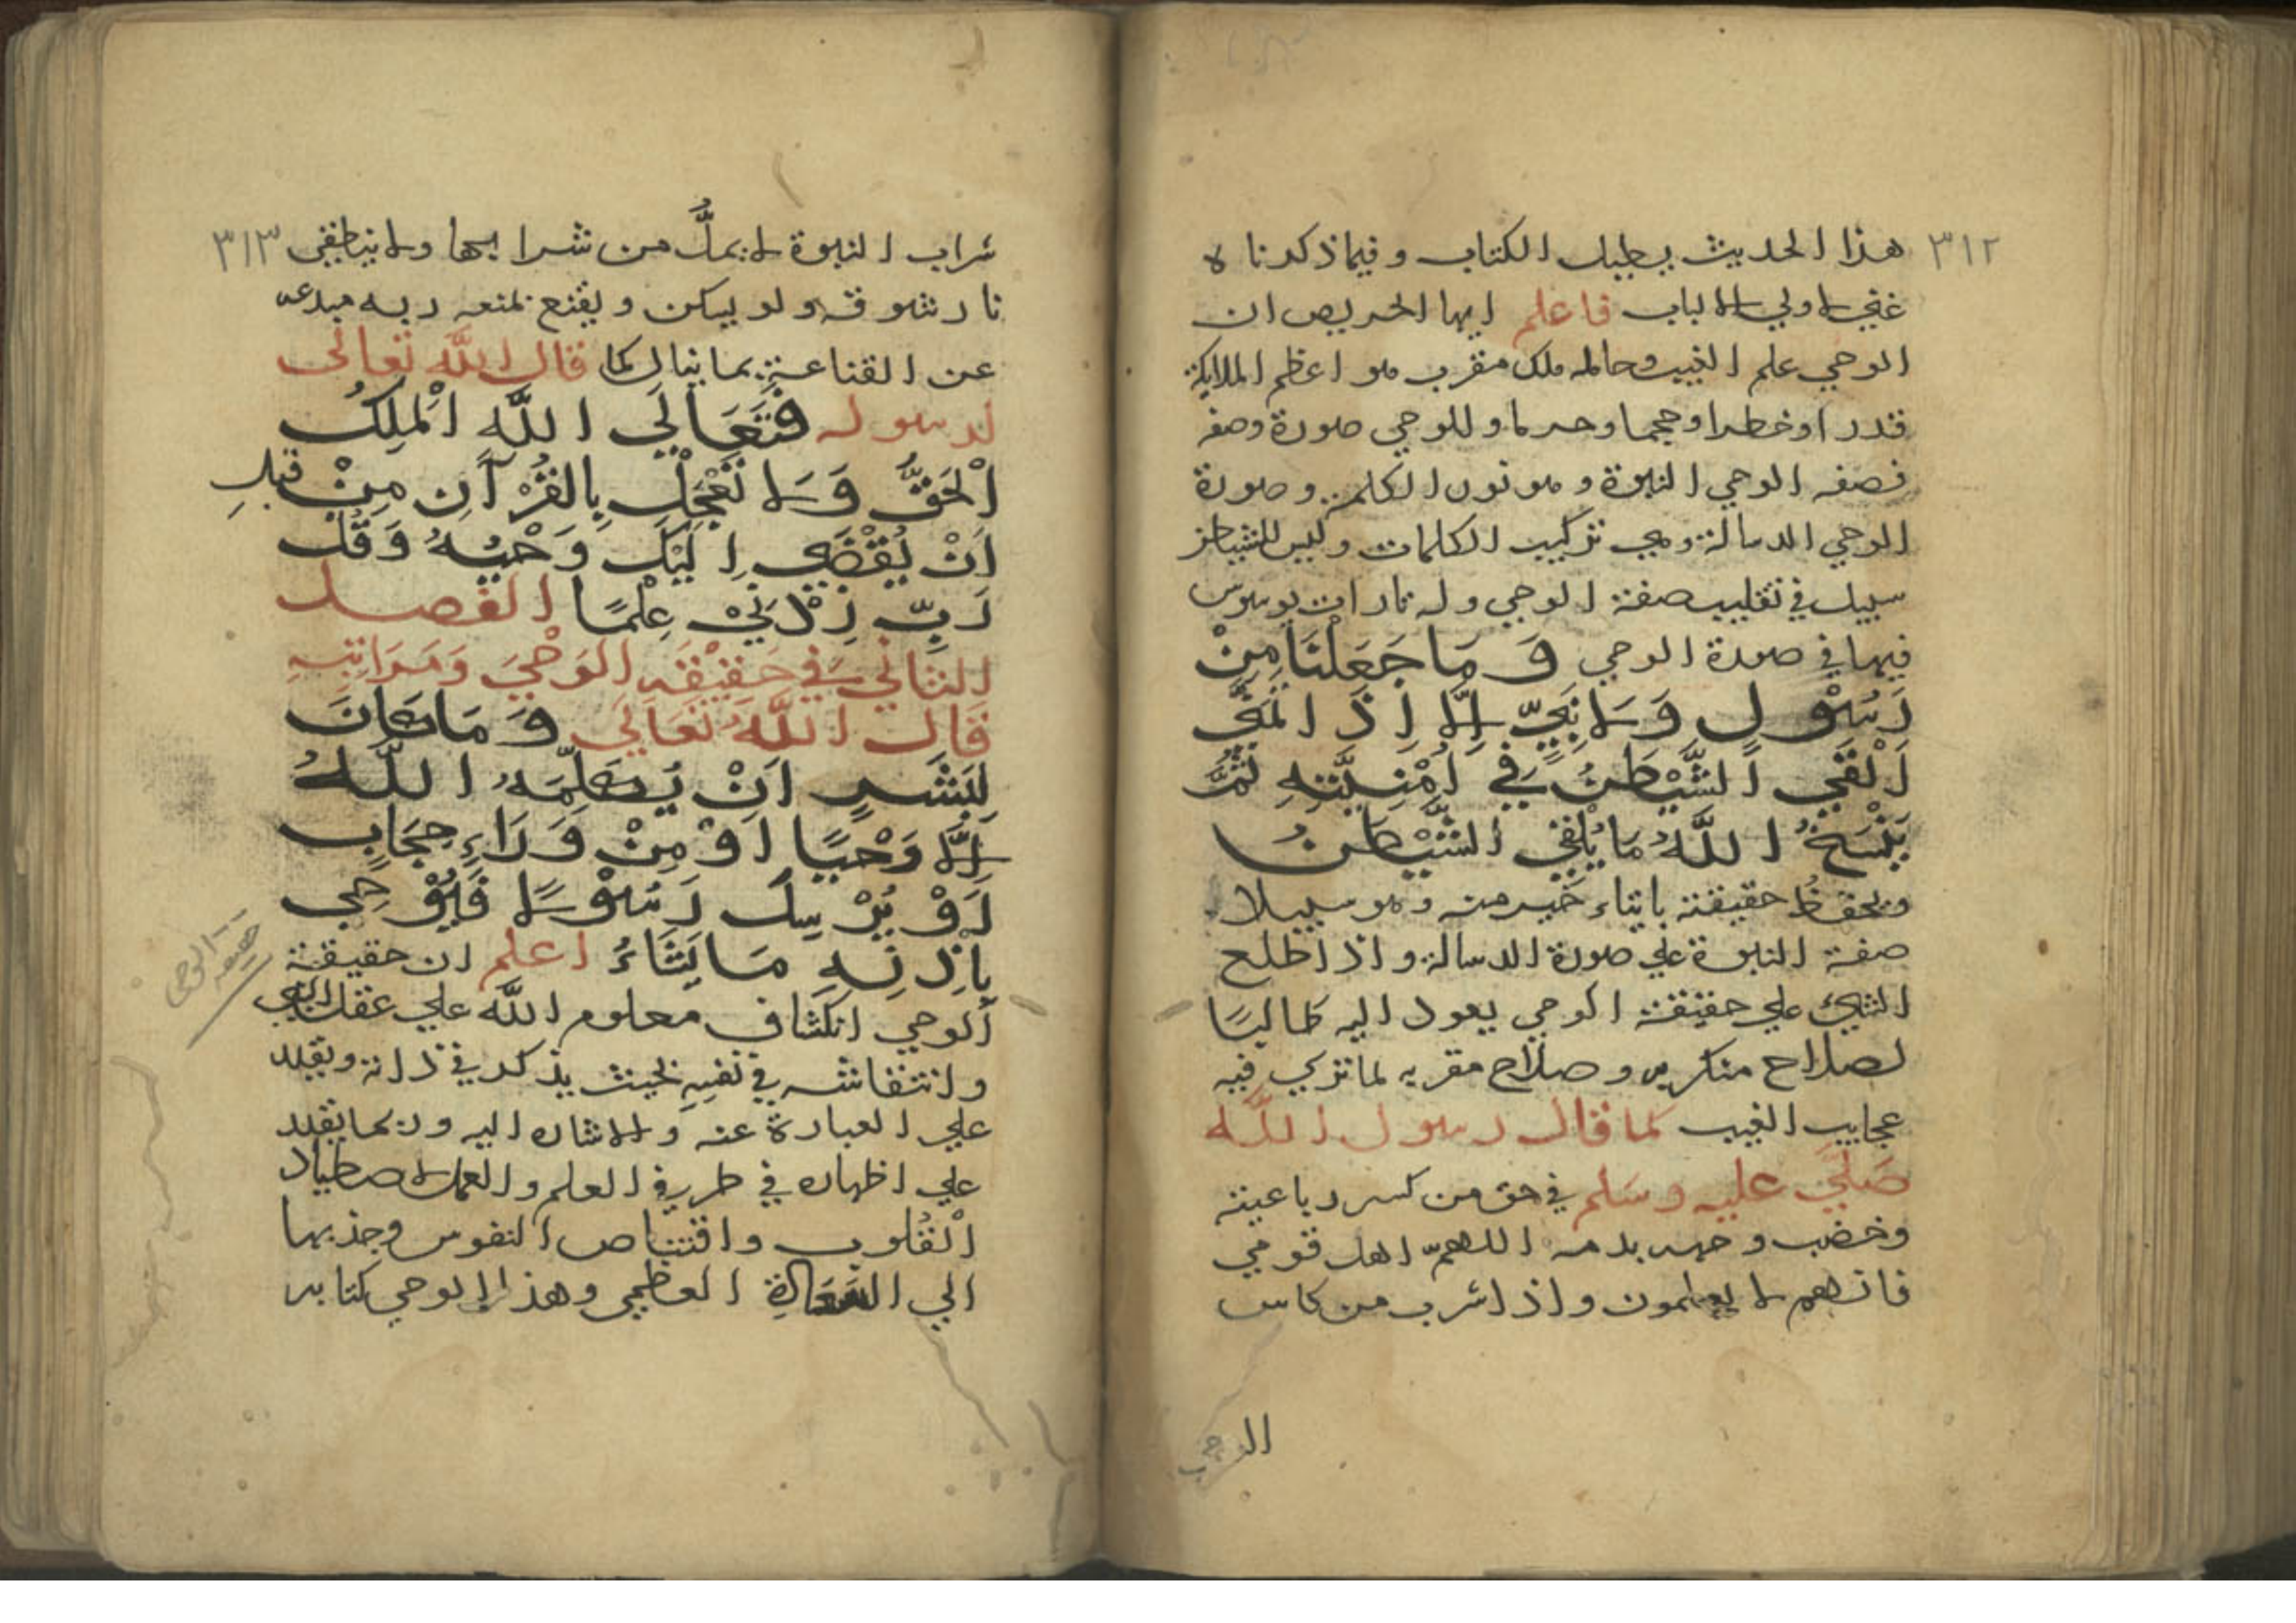 ٣١٢
هذا الحديث يطيل الكتاب وفيما ذكرناه
غني لاولي الالباب فاعلم ايها الحريص ان
الوحي علم الغيب وحامله ملك مقرب هو اعظم الملايكة
قدرا وخطرا وحجما وجرما وللوحي صورة وصفه
فصفه الوحي النبوة وهو نون الكلمة وصورة
الوحي الرسالة وهي تركيب الكلمات وليس للشيطان
سبيل في تقليب صفة الوحي وله نار ان يوسوس
فيها في صورة الوحي وَمَا جَعَلْنَا مِنْ
رَسُوْلٍ وَلَا نَبِيٍّ اِلَّا اِذَا تَمَنَّى
اَلْقَي الشَّيْطٰنُ فِي اُمْنِيَّتِهِ ثُمَّ
يَنْسَخُ اللَّهُ مَا يُلْقِي الشَّيْطٰنُ
ويحفظ حقيقته باتياء خير منه وهو سبيلا
صفة النبوة علي صورة الرسالة واذا طلع
الشيئ علي حقيقة الوحي يعود اليه طالبًا
لصلاح منكريه وصلاح مقريه لما تزكي فيه
عجايب الغيب كما قال رسول الله
صَلَّي عليه وسَلم في حق من كسر رباعيته
وخضب وجهه بدمه اللهمّ اهد قومي
فانهم لا يعلمون واذا شرب من كاس
الوحي
شراب النبوة لا يملُّ من شرابها ولا ينطفي ٣١٣
نار شوقه ولو يسكن ويقنع لمنعه ربه
عن القناعة بما ينال كما قال اللَّه تعالى
لرسوله فَتَعَالَي اللَّهِ الْمَلِكُ
الْحَقُّ وَلَا تَعْجَلْ بِالْقُرْآنِ مِنْ قبلِ
اَنْ يُقْضَي اِلَيْكَ وَحْيُهُ وَقُلْ
رَبِّ زِدْنِيْ عِلْمًا الفصل
الثاني فِي حَقِيْقَةِ الوَحْيَ وَمَرَاتِبِهِ
قَالَ اللَّهُ تَعَالَي وَمَا كَانَ
لِبَشَرٍ اَنْ يُكَلِّمَهُ اللَّهُ
اِلَّا وَحْيًا اَوْ مِنْ وَرَاءِ حِجَابٍ
اَوْ يُرْسِلَ رَسُوْلًا فَيُوْحِي
بِاِذْنِهِ مَا يَشَاءُ اعلم ان حقيقة
الوحي انكشاف معلوم اللَّه علي عقل النبي
وانتقاشه في نفسِهِ بحيث يذكر في ذاته ويقدر
علي العبارة عنه والاشاره اليه وربما يقدر
علي اظهاره في طريق العلم والعمل لاصطياد
القُلوب واقتناص النفوس وجذبها
الي السَّعَادَة العظمي وهذا الوحي كتابه
حقيقة الوحي